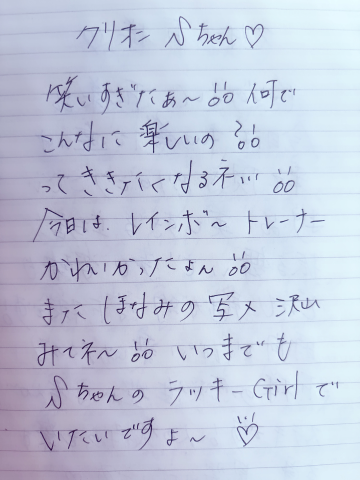 クリオネ Sちゃん♡
笑いすぎたぁ〜!! 何で
こんなに 楽しいの ?!!
って ききたくなるネ… !!
今日は、レインボ〜 トレーナー
かわいかったょん !!
また ほなみの 写メ 沢山
みてネ〜 !! いつまでも
Sちゃんの ラッキーGirl で
いたいですょ〜 ♡